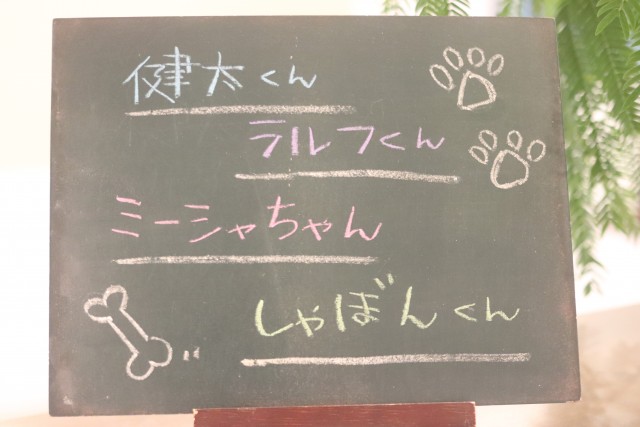 健太くん
ラルフくん
ミーシャちゃん
しゃぼんくん